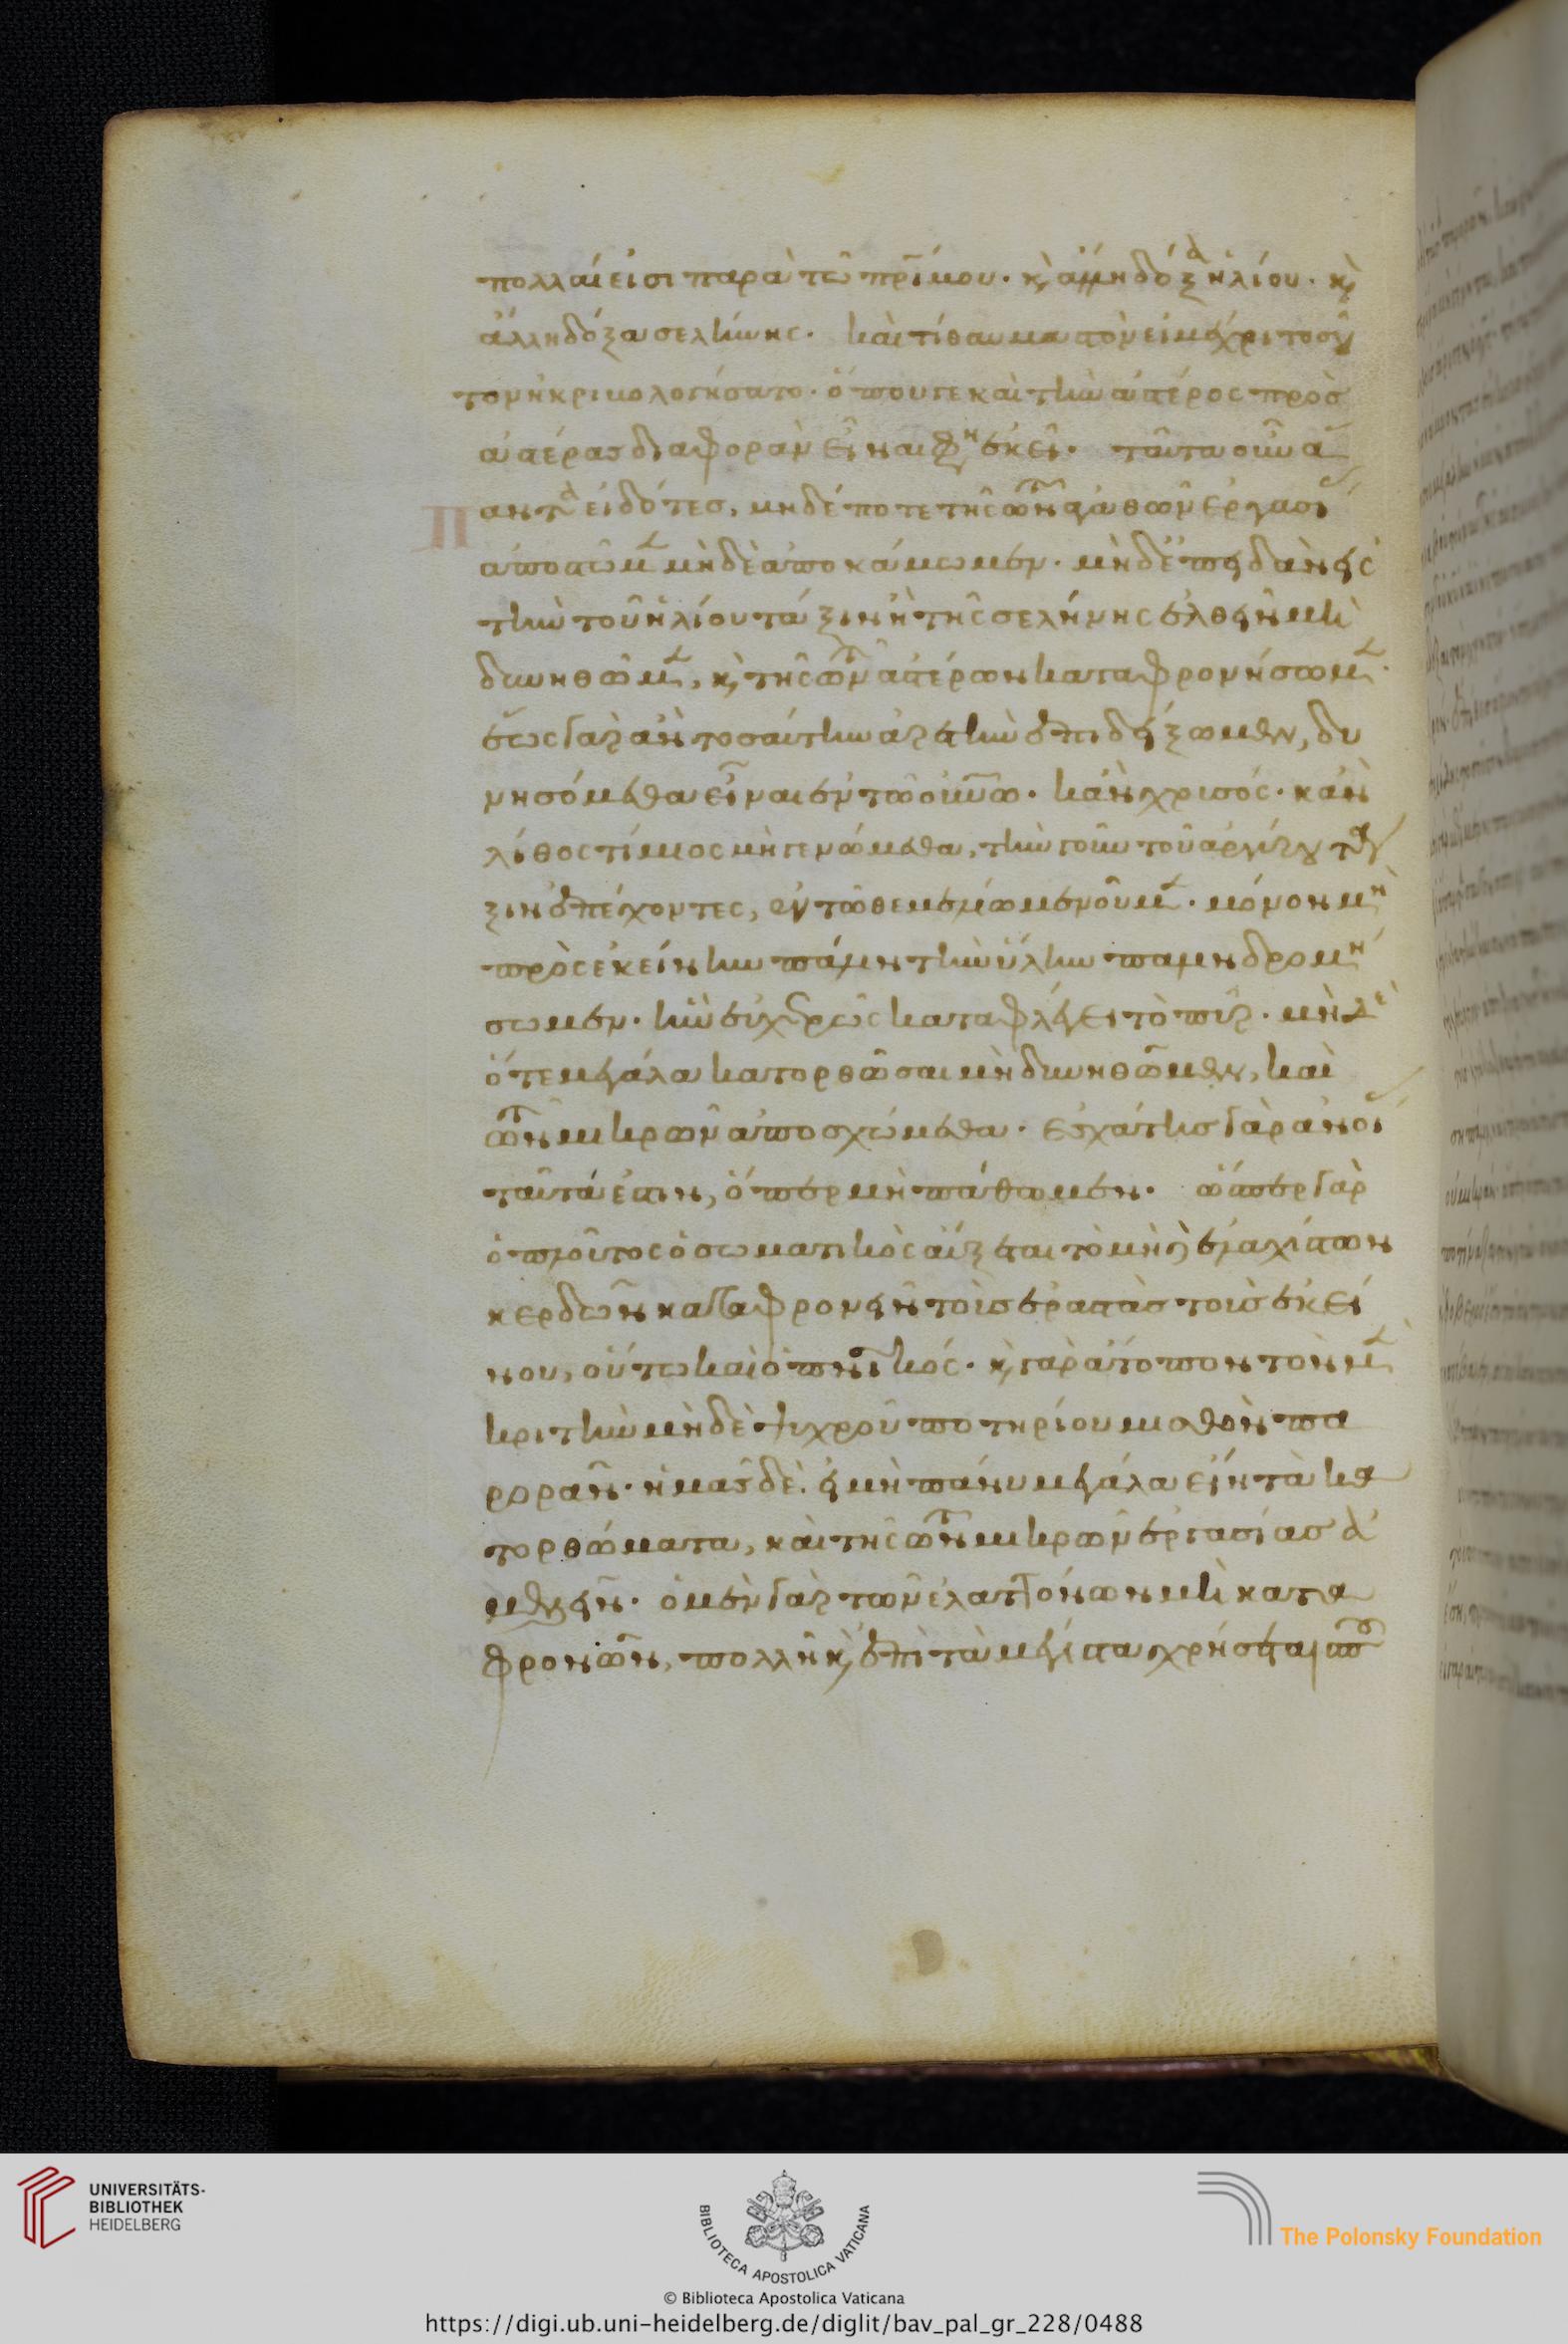 πολλαί εἰσι παρὰ τῶ πρ̅ί μου. κ ἄλλη δόξα ἡλίου. κ
ἄλλη δόξα σελήνης. καὶ τί θαυμαστὸν εἰ μέχρι τού
των ἠκριβολογήσατο. ὅπου γε καὶ τὴν ἀστέρος πρὸς
ἀστέρας διαφορὰν εἶναι φησὶν ἐκεῖ. ταῦτα οὖν ἅ
παντα εἰδότες, μηδέποτε τῆς τῶν ἀγαθῶν ἐργασίας
ἀποστῶμεν μηδὲ ἀποκάμωμεν. μηδἐπειδὰν εἰς
τὴν τοῦ ἡλίου τάξιν ἢ τῆς σελήνης ἐλθεῖν μὴ
δυνηθῶμεν, κ τῆς τῶν ἀστέρων καταφρονήσωμεν.
ἕως γὰρ ἂν τοσαύτην ἀρετὴν ἐπιδείξωμεν, δυ
νησόμεθα εἶναι ἐν τῶ οὐν̅ῶ. κἂν χρυσός. κἂν
λίθος τίμιος μὴ γενώμεθα, τὴν γοῦν τοῦ ἀργύρου τά
ξιν ἐπέχοντες, ἐν τῶ θεμελίω μενοῦμεν. μόνον μὴ
πρὸς ἐκείνην πάλιν τὴν ὕλην παλινδρομή
σωμεν. ἣν εὐχερῶς καταφλέγει τὸ πῦρ. μηδὲ
ὅτε μεγάλα κατορθῶσαι μὴ δυνηθῶμεν, καὶ
τῶν μικρῶν ἀποσχώμεθα. ἐσχάτης γὰρ ἀνοίας
ταῦτά ἐστιν, ὅπερ μὴ πάθωμεν. ὥσπερ γὰρ
ὁ πλοῦτος ὁ σωματικὸς αὔξεται τὸ μὴ ἐλαχίστων
κερδῶν καταφρονεῖν τοὺς ἐραστὰς τοὺς ἐκεί
νου, οὕτω καὶ ὁ πν̅ικός. κ γὰρ ἄτοπον τὸν μὲν
κριτὴν μηδὲ ψυχροῦ ποτηρίου μισθὸν πα
ρορᾶν. ἡμᾶς δὲ. εἰ μὴ πάνυ μεγάλα εἴη τὰ κα
τορθώματα, καὶ τῆς τῶν μικρῶν ἐργασίας ἀ
μελεῖν. ὁ μὲν γὰρ τῶν ἐλαττόνων μὴ κατα
φρονῶν, πολλῆ κ ἐπὶ τὰ μέγιστα χρήσεται
UNIVERSITÄTS-
BIBLIOTHEK
HEIDELBERG
BIBLIOTECA APOSTOLICA VATICANA
The Polonsky Foundation
© Biblioteca Apostolica Vaticana
https://digi.ub.uni-heidelberg.de/diglit/bav_pal_gr_228/0488